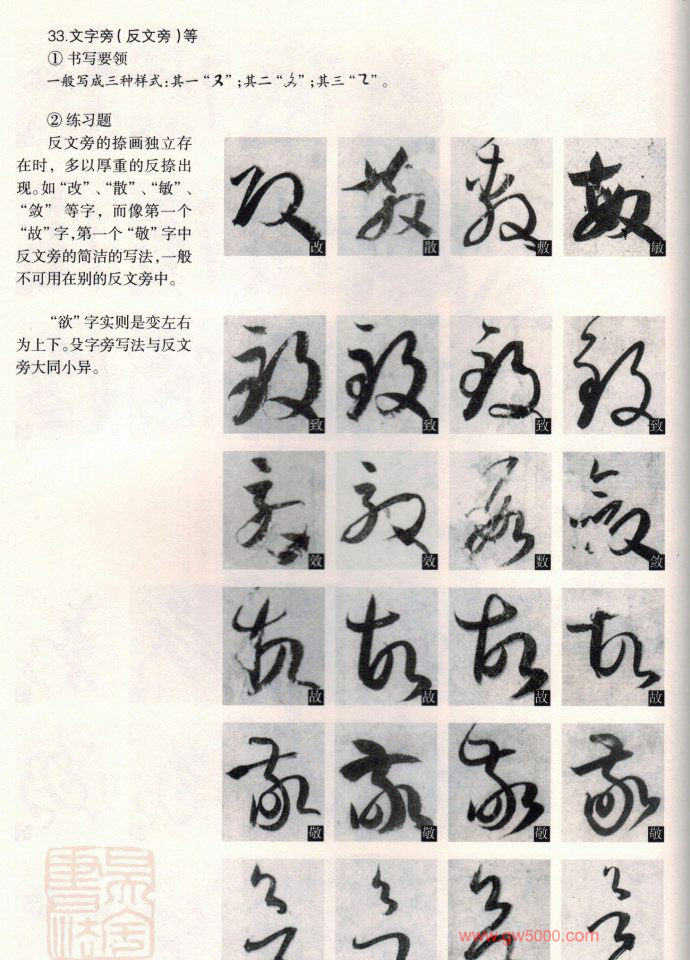 33.文字旁(反文旁)等
① 书写要领
一般写成三种样式:其一“又”;其二“”;其三“”。
② 练习题
反文旁的捺画独立存
在时，多以厚重的反捺出
现。如“改”、“散”、“敏”、
“敛” 等字，而像第一个
“故”字,第一个“敬”字中
反文旁的简洁的写法,一般
不可用在别的反文旁中。
“欲”字实则是变左右
为上下。殳字旁写法与反文
旁大同小异。
改 散 敷 敏
致 致 致 致
效 效 数 敛
故 故 故 故
敬 敬 敬 敬
www.gw5000.com